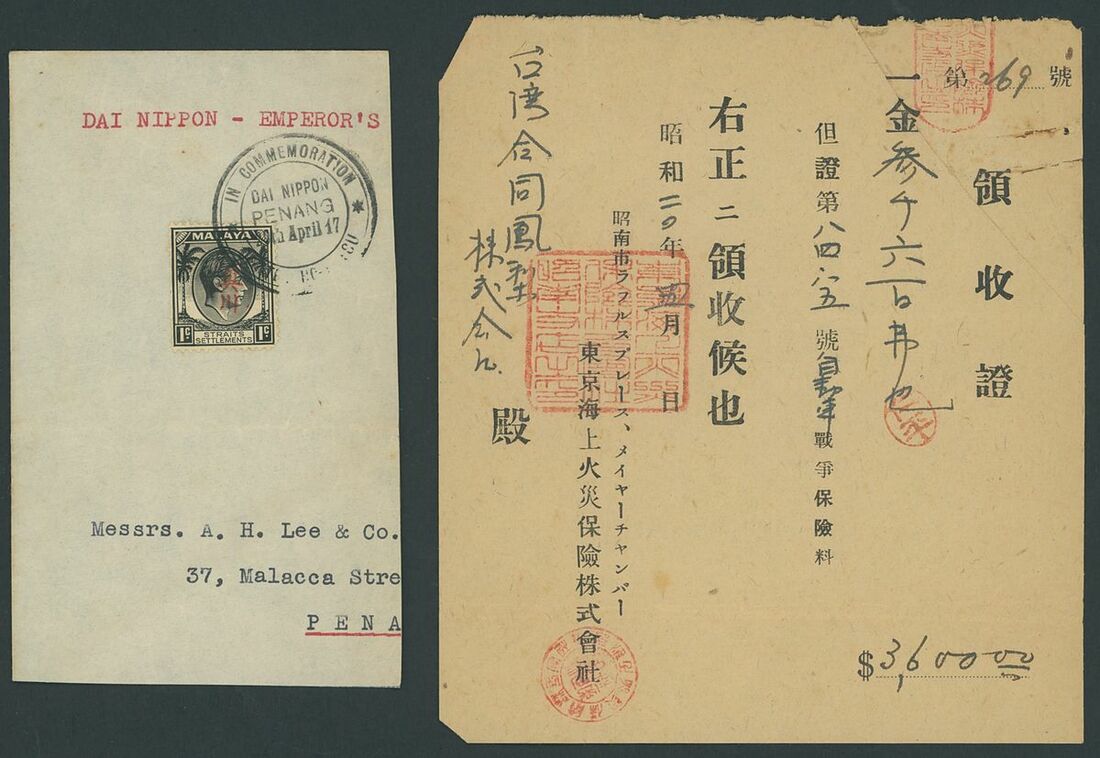 DAI NIPPON - EMPEROR'S
IN COMMEMORATION
DAI NIPPON
PENANG
April 17
MALAYA
1c STRAITS SETTLEMENTS 1c
Messrs. A. H. Lee & Co.
37, Malacca Stre
PENA
第269號
領收證
一金參千六百弗也
但證第八四八五號自動車戰爭保險料
右正ニ領收候也
昭和二〇年五月 日
昭南市ラフルスプレース、メイヤーチャンバー
東京海上火災保險株式會社
台湾合同鳳梨
株式会社
殿
$3,600.00